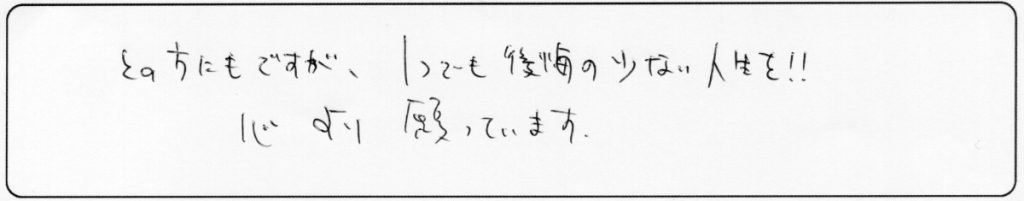 どの方にもですが、1つでも後悔の少ない人生を!!
心より願っています.